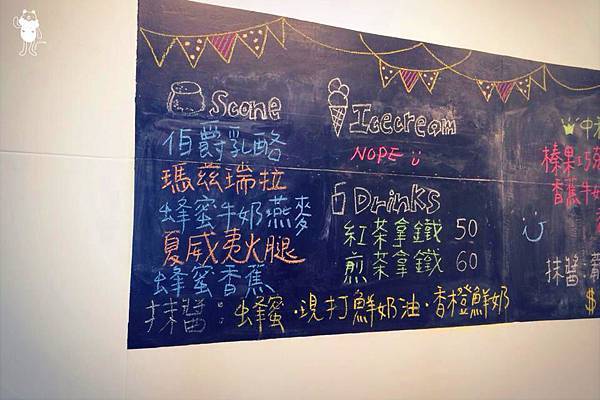 Scone
伯爵乳酪
瑪茲瑞拉
蜂蜜牛奶燕麥
夏威夷火腿
蜂蜜香蕉
抹醬：蜂蜜·現打鮮奶油·香橙鮮奶
Icecream
NOPE
Drinks
紅茶拿鐵 50
煎茶拿鐵 60
榛果巧
香蕉牛奶
抹醬:
$